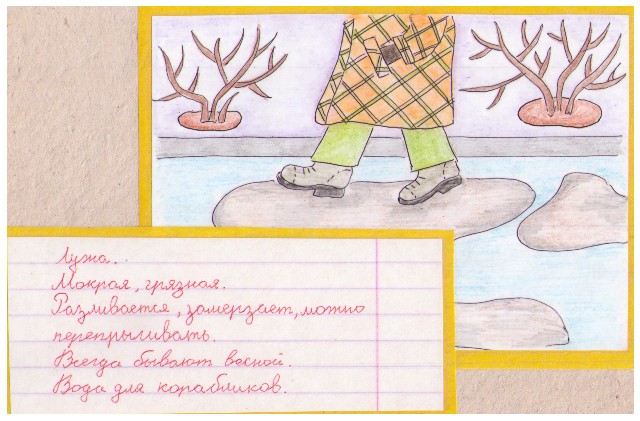 Лужа.
Мокрая, грязная.
Разливается, замерзает, можно
перепрыгивать.
Всегда бывают весной.
Вода для корабликов.